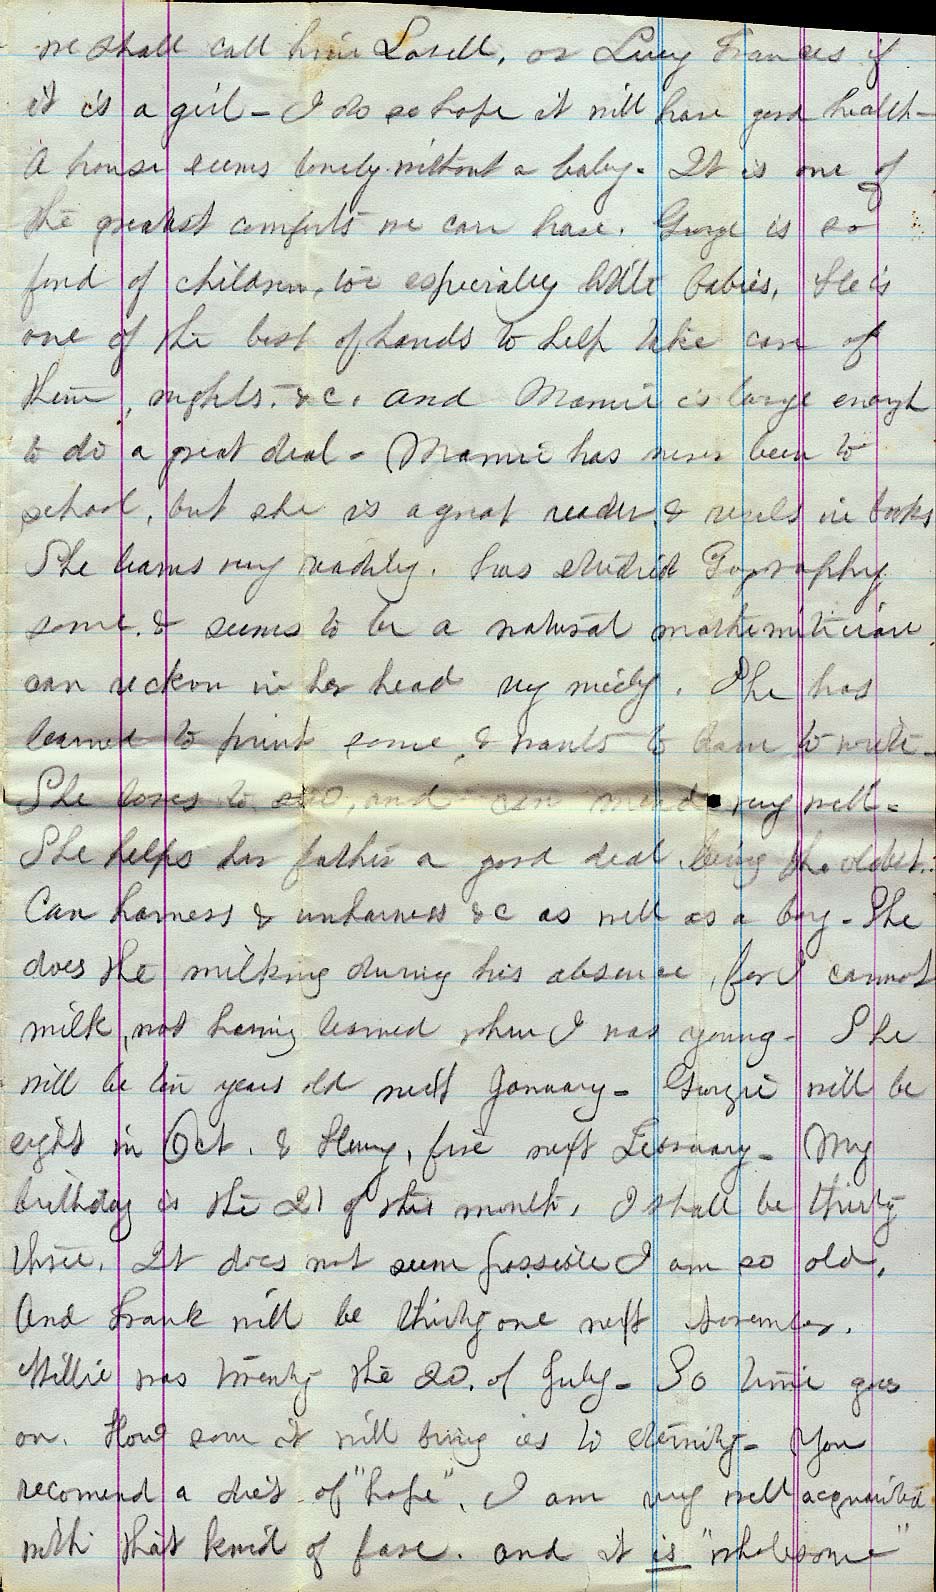 we shall call him Lovell, or Lucy Frances if
it is a girl - I do so hope it will have good health -
A house seems lonely without a baby - It is one of
the greatest comforts we can have. George is so
fond of children, too especially little babies, He is
one of the best of hands to help take care of
them, nights, &c. and Mamie is large enough
to do a great deal - Mamie has never been to
school, but she is a great reader & revels in books
She learns very readily. has studied Geography
some & seems to be a natural mathemitician
can reckon in her head very nicely. She has
learned to print some, & wants to learn to write -
She loves to sew, and can mend very well -
She helps her father a good deal being the oldest.
Can harness & unharness &c as well as a boy - She
does the milking during his absence, for I cannot
milk, not having learned when I was young - She
will be ten years old next January - Georgie will be
eight in Oct. & Henry, five next February - My
birthday is the 21 of this month, I shall be thirty
three. It does not seem possible I am so old,
And Frank will be thirty one next November.
Willie was twenty the 20. of July - So time goes
on. How soon it will bring us to eternity - You
recomend a diet of "hope", I am very well acquainted
with that kind of fare. and it is "wholesome"